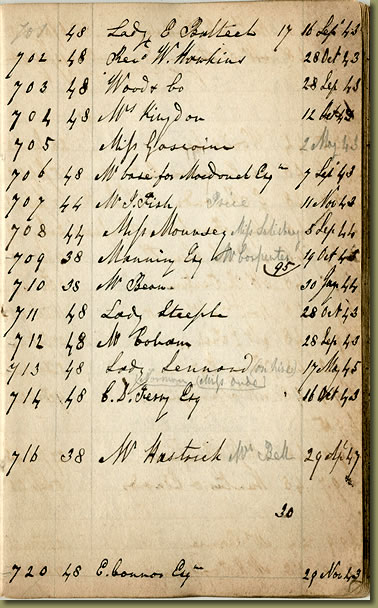 701 48 Lady E Bulteel 17 16 Sep 43
702 48 Revd W. Hawkins 28 Oct 43
703 48 Wood & Co 28 Sep 43
704 48 Mrs Kingdon 12 Oct 43
705 Miss Gascoine 2 May 43
706 48 Mr Case for Macdonel Esqr 7 Sep 43
707 44 Mr J. Fish Price 11 Nov 43
708 44 Miss Mounsey 8 Sep 44
709 38 Manning Esq Mr Carpenter 19 Oct 45
95
710 38 Mr Beane 30 Jan 44
711 48 Lady Steeple 28 Oct 43
712 48 Mr Cobham 28 Sep 43
713 48 Lady Lennard (on hire) 17 Mch 45
714 48 C. D. Ferry Esq 16 Oct 43
716 38 Mr Hastrick Mr Bell 29 Apl 47
30
720 48 E. Connor Esqr 29 Nov 43